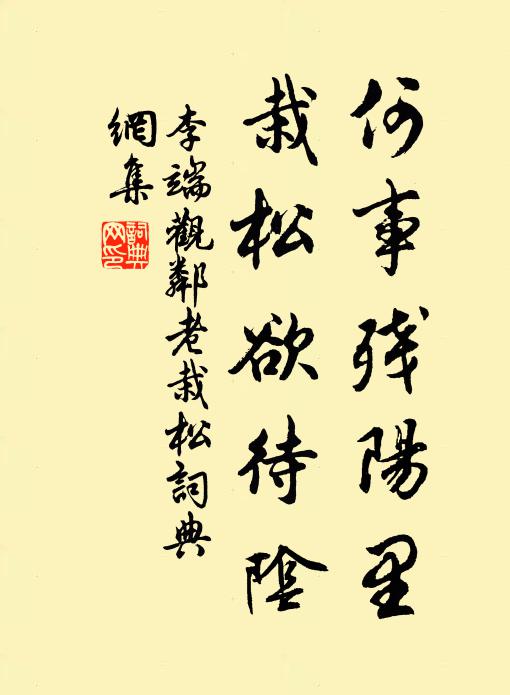 何事残陽里
栽松欲待陰
李端觀鄰老栽松詞典
網集
詞典
网印